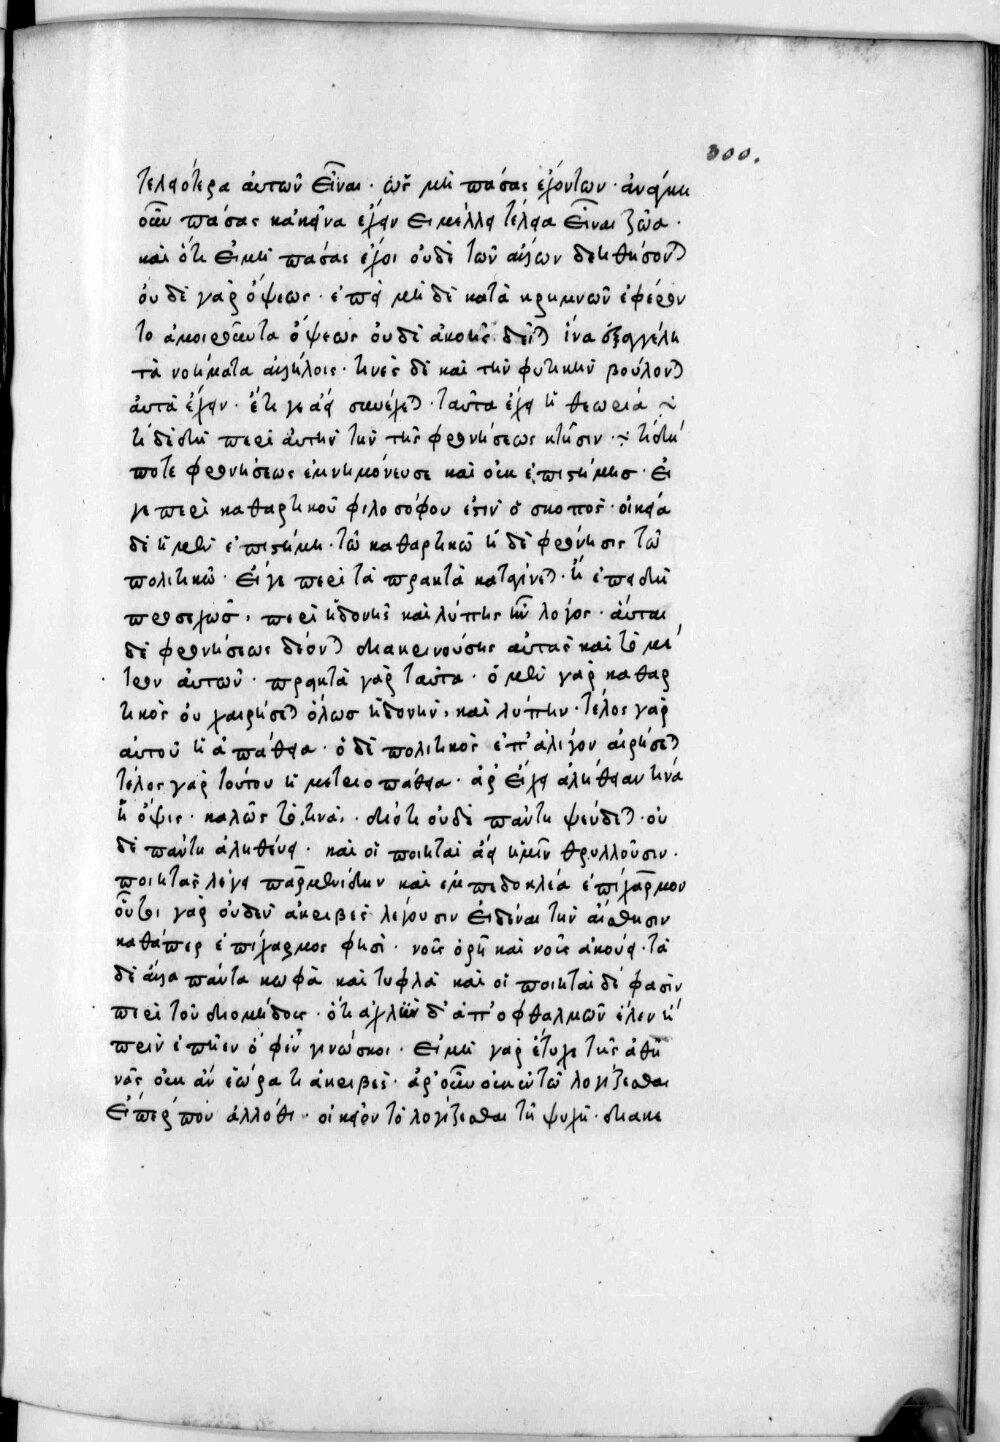 300.
τελειότερα αὐτῶν εἶναι · ὡς μὴ πάσας ἐχόντων · ἀνάγκη
οὖν πάσας κἀκεῖνα ἔχειν εἰ μέλλει τέλεια εἶναι ζῶα ·
καὶ ὅτι εἰ μὴ πάσας ἔχοι οὐδὲ τῶν ἄλλων δεηθήσοντ
οὐδὲ γὰρ ὄψεως · ἐπεὶ μὴ δὲ κατὰ κρημνῶν ἐφέρον
το ἀμοιροῦντα ὄψεως οὐδὲ ἀκοῆς δεῖτ ἵνα ἐξαγγέλη
τὰ νοήματα ἀλλήλοις · τινὲς δὲ καὶ τὴν φυτικὴν βούλοντ
αὐτὰ ἔχειν · ἔτι γε ἀεὶ συνέχετ · ταῦτα ἔχει ἡ θεωρία ·~
τί δὲ δὴ περὶ αὐτὴν τὴν τῆς φρονήσεως κτῆσιν ·~ τί δή
ποτε φρονήσεως ἐμνημόνευσε καὶ οὐκ ἐπιστήμησ · εἴ
γε περὶ καθαρτικοῦ φιλοσόφου ἐστὶν ὁ σκοπὸς · οἰκεία
δὲ ἡ μὲν ἐπιστήμη · τῶ καθαρτικῶ ἡ δὲ φρόνησις τῶ
πολιτικῶ · εἴγε περὶ τὰ πρακτὰ καταγίνετ · ἢ ἐπειδὴ
προσεχῶσ, περὶ ἡδονῆς καὶ λύπης ἦν λόγος · αὗται
δὲ φρονήσεως δέοντ διακρινούσης αὐτὰς καὶ τὸ μέ
τρον αὐτῶν · πρακτὰ γὰρ ταῦτα · ὁ μὲν γὰρ καθαρ
τικὸς οὐ χαιρήσει ὅλωσ ἡδονὴν, καὶ λύπην · τέλος γὰρ
αὐτοῦ ἡ ἀπάθεια · ὁ δὲ πολιτικὸς ἐπ' ὀλίγον αἱρήσετ
τέλος γὰρ τούτου ἡ μετριοπάθεια · ἆρ' ἔχει ἀλήθειαν τινά
ἡ ὄψις · καλῶς τὸ, τινά, · διότι οὐδὲ πάντη ψεύδετ · οὐ
δὲ πάντη ἀληθεύει · καὶ οἱ ποιηταὶ ἀεὶ ἡμῖν θρυλλοῦσιν ·
ποιητὰς λέγει παρμενίδην καὶ ἐμπεδοκλέα ἐπίχαρμον
οὗτοι γὰρ οὐδὲν ἀκριβὲς λέγουσιν εἰδέναι τὴν αἴσθησιν
καθάπερ ἐπίχαρμος φησὶ · νοῦς ὁρῆ καὶ νοῦς ἀκούει · τὰ
δὲ ἄλλα πάντα κωφὰ καὶ τυφλὰ καὶ οἱ ποιηταὶ δέ φασὶν
περὶ τοῦ διομήδους · ὅτι ἀχλὺν δ' ἀπ' ὀφθαλμῶν ἕλεν ἣ
πρὶν ἐπῆεν ὄφρ' εὖ γινώσκοι · εἰ μὴ γὰρ ἔτυχε τῆς ἀθη
νᾶς οὐκ ἂν ἑώρα τι ἀκριβὲς · ἆρ' οὖν οὐκ ἐν τῶ λογίζεσθαι
εἴπερ που ἄλλοθι · οἰκεῖον τὸ λογίζεσθαι τῆ ψυχῆ · διακε